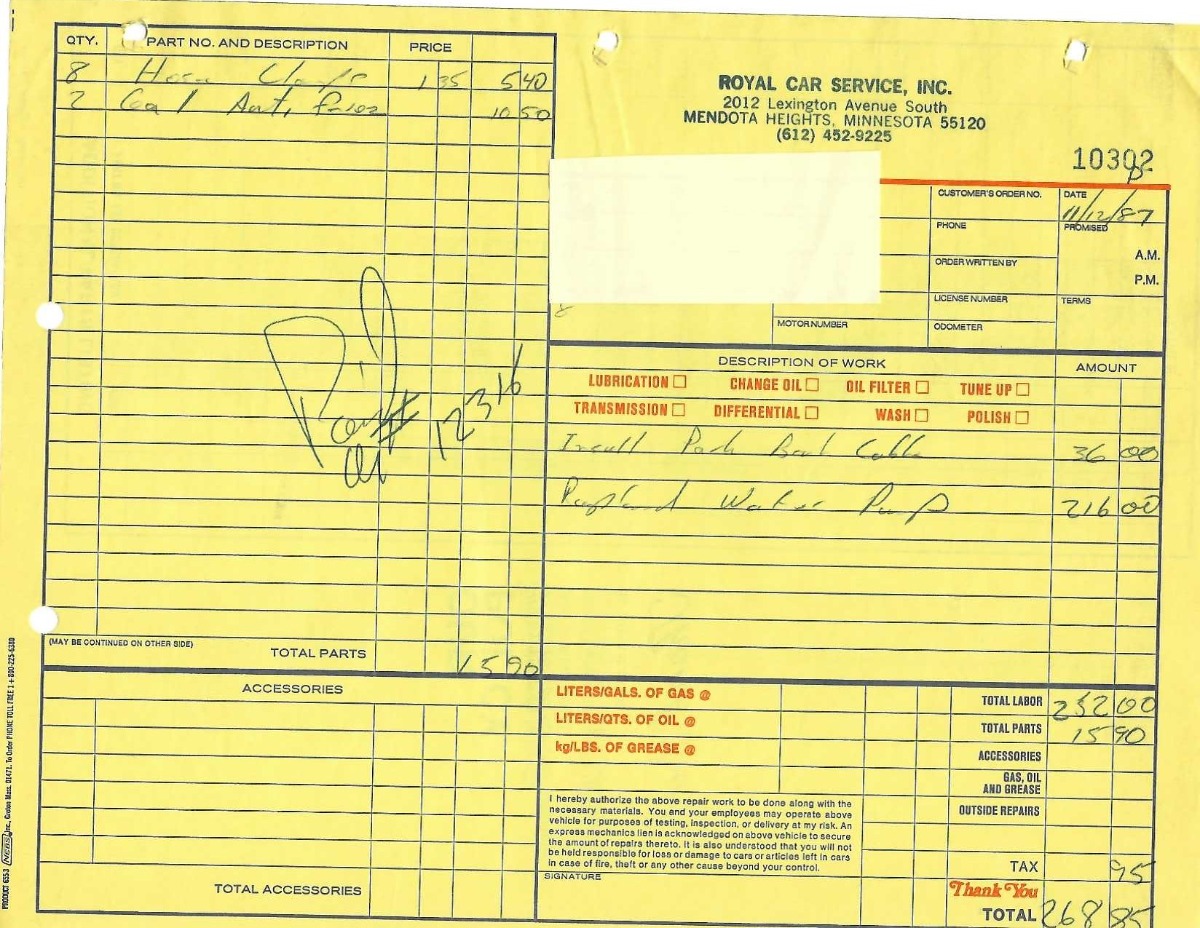 QTY. PART NO. AND DESCRIPTION PRICE
8 Hose Clamps 1 35 5 40
2 Gal Anti frees 10 50
Paid
12316
(MAY BE CONTINUED ON OTHER SIDE)
TOTAL PARTS 15 90
ACCESSORIES
TOTAL ACCESSORIES
PRODUCT 655-3 NEBS Inc., Groton Mass. 01471. To Order PHONE TOLL FREE 1 + 800-225-6380
ROYAL CAR SERVICE, INC.
2012 Lexington Avenue South
MENDOTA HEIGHTS, MINNESOTA 55120
(612) 452-9225
10302
CUSTOMER'S ORDER NO. DATE
11/12/87
PHONE PROMISED
A.M.
ORDER WRITTEN BY
P.M.
LICENSE NUMBER TERMS
MOTOR NUMBER ODOMETER
DESCRIPTION OF WORK AMOUNT
LUBRICATION CHANGE OIL OIL FILTER TUNE UP
TRANSMISSION DIFFERENTIAL WASH POLISH
Cable 36 00
Water Pump 216 00
LITERS/GALS. OF GAS @ TOTAL LABOR 252 00
LITERS/QTS. OF OIL @ TOTAL PARTS 15 90
kg/LBS. OF GREASE @ ACCESSORIES
GAS, OIL
AND GREASE
OUTSIDE REPAIRS
I hereby authorize the above repair work to be done along with the
necessary materials. You and your employees may operate above
vehicle for purposes of testing, inspection, or delivery at my risk. An
express mechanics lien is acknowledged on above vehicle to secure
the amount of repairs thereto. It is also understood that you will not
be held responsible for loss or damage to cars or articles left in cars
in case of fire, theft or any other cause beyond your control.
SIGNATURE
TAX 95
Thank You
TOTAL 268 85